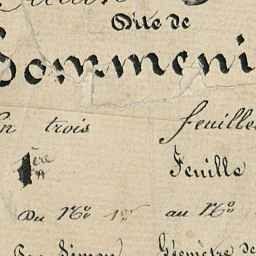 Dite de
Dommeni
en trois feuille
1ère Feuille
Du N° 1er au N°
Par Simon Géomètre de